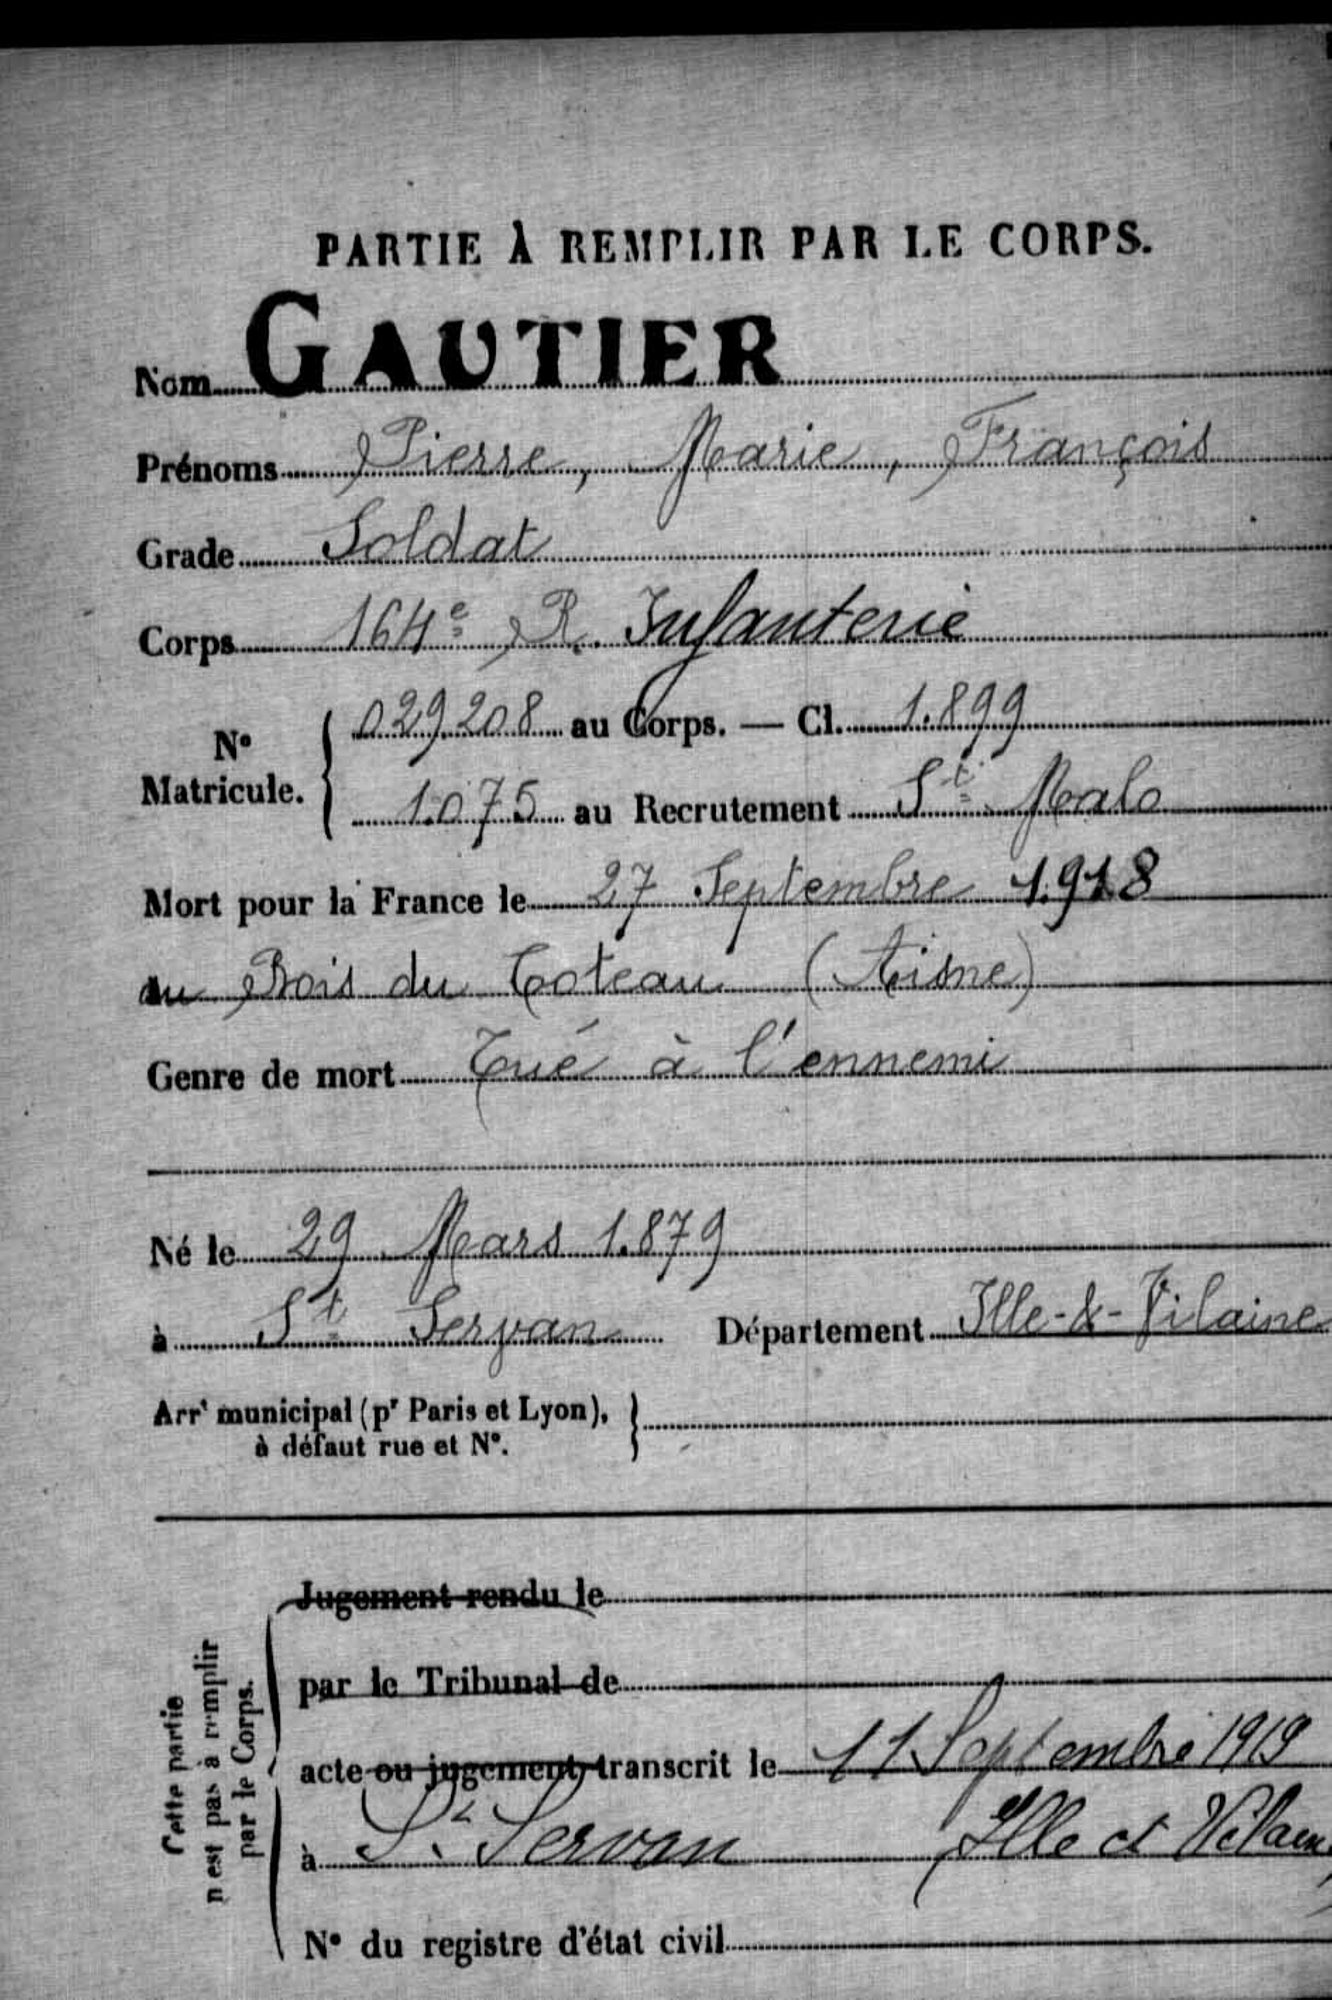 PARTIE À REMPLIR PAR LE CORPS.
Nom GAUTIER
Prénoms Pierre, Marie, François
Grade Soldat
Corps 164e R. Infanterie
No Matricule. { 029.208 au Corps. — Cl. 1.899
1.075 au Recrutement St Malo
Mort pour la France le 27 Septembre 1.918
au Bois du Coteau (Aisne)
Genre de mort Tué à l'ennemi
Né le 29 Mars 1.879
à St Servan Département Ille-&-Vilaine
Arrt municipal (pr Paris et Lyon), }
à défaut rue et No.
Cette partie
n'est pas à remplir
par le Corps.
Jugement rendu le
par le Tribunal de
acte ou jugement transcrit le 11 Septembre 1919
à St Servan Ille et Vilaine
No du registre d'état civil